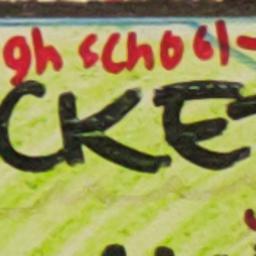 gh school-
CKE